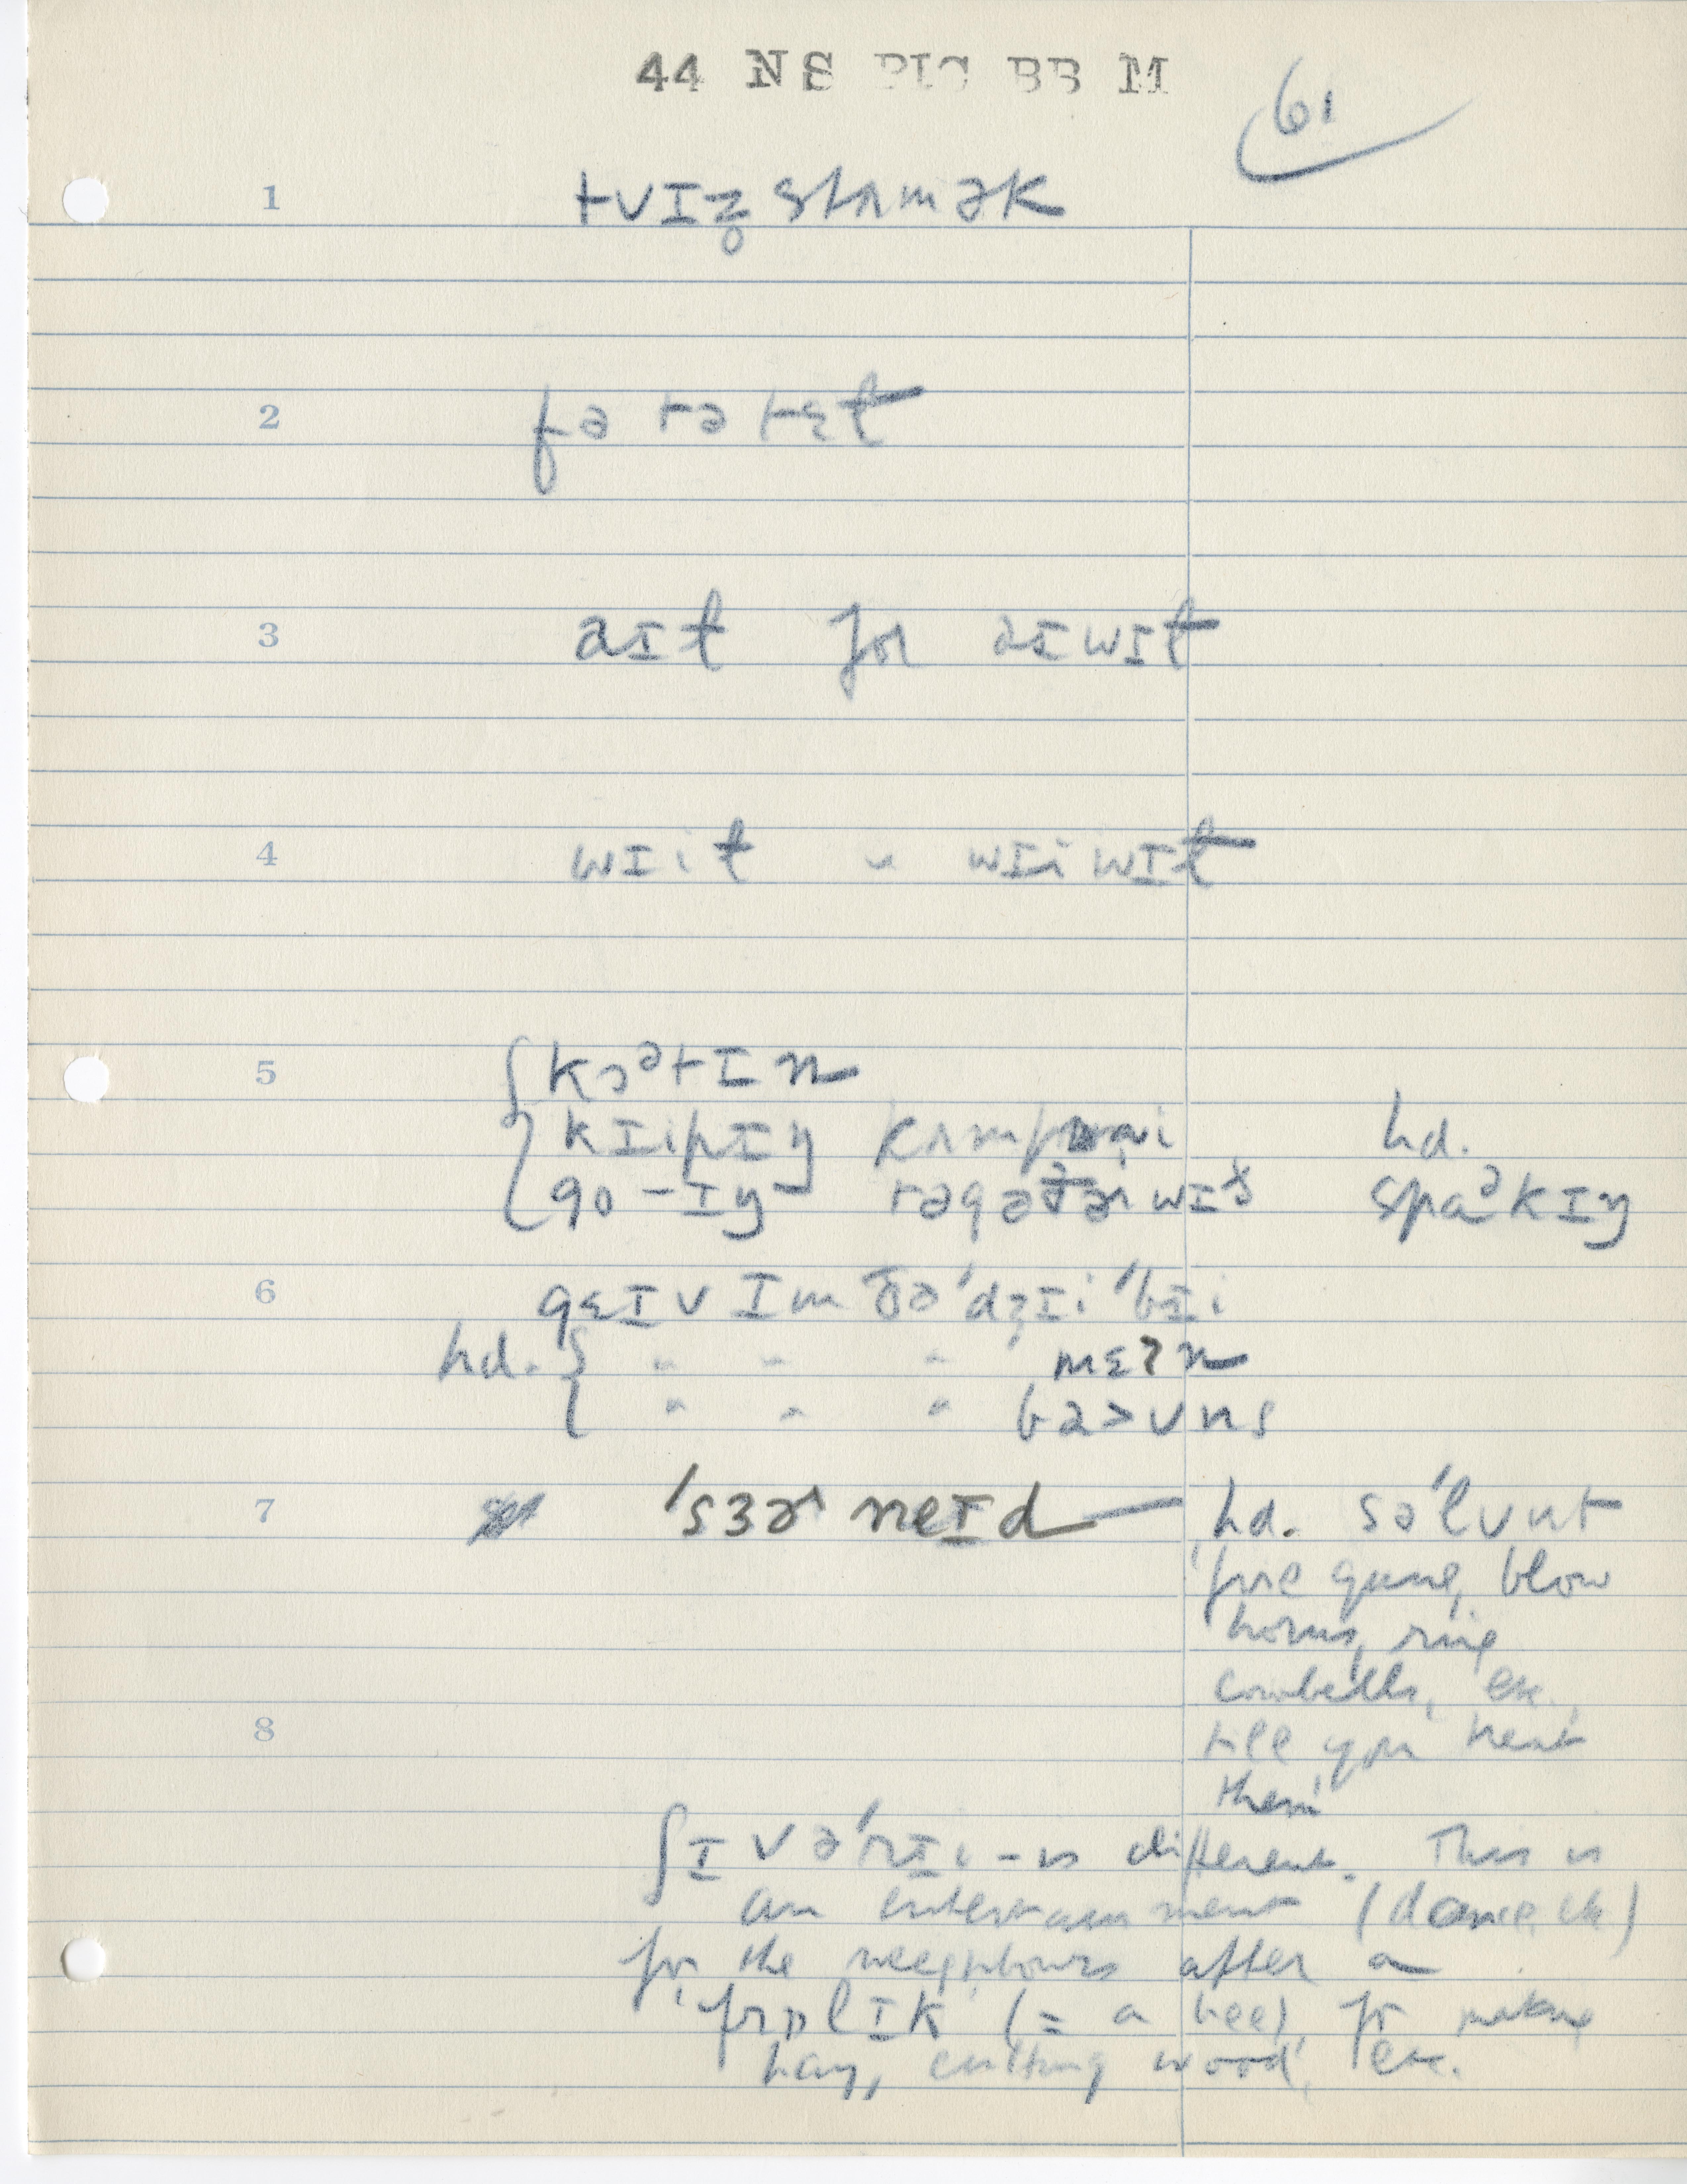 44 NS PIC BB M
61
1 tʊɪz̥ stʌmək
2 fə rə rɛt
3 aɪt for aɪwɪt
4 wɪit " wɪiwɪt
5 kɔᵊtɪn
kɪipɪŋ kʌmpnəi hd.
go-ɪŋ təgəðɚ wɪð spaᵊkɪŋ
6 gɛɪv ɪm ðə 'dʒɪi 'bɪi
hd. " " " mɛʔn
" " " ba>ʊns
7 'sɜɚneɪd — hd. sə'lʊut
'fire guns, blow
horns, ring
cowbells, etc.,
till you treat
them'
8
ʃɪvə'rɪi - is different. This is
an entertainment (dance, etc)
for the neighbours after a
'frɒlɪk' (= a bee), for making
hay, cutting wood, etc.